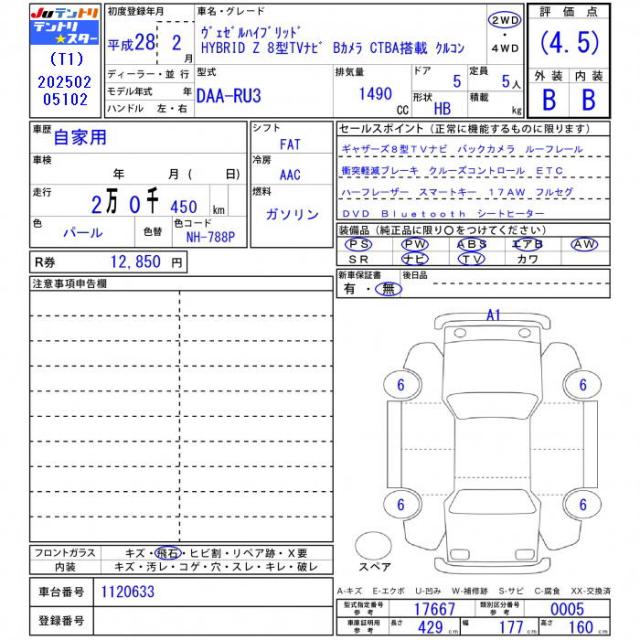 JUテントリ
テントリ
★スター
(T1)
202502
05102
初度登録年月
平成28年2月
ディーラー・並行
モデル年式 年
ハンドル 左・右
車名・グレード
ヴェゼルハイブリッド
HYBRID Z 8型TVナビ Bカメラ CTBA搭載 クルコン
2WD
・
4WD
型式
DAA-RU3
排気量
1490
CC
ドア
5
定員
5人
形状
HB
積載
kg
評価点
(4.5)
外装 内装
B B
車歴
自家用
車検
年 月 ( 日)
走行
2万0千450km
色
パール
色替
色コード
NH-788P
シフト
FAT
冷房
AAC
燃料
ガソリン
R券 12,850 円
セールスポイント(正常に機能するものに限ります)
ギャザーズ8型TVナビ バックカメラ ルーフレール
衝突軽減ブレーキ クルーズコントロール ETC
ハーフレーザー スマートキー 17AW フルセグ
DVD Bluetooth シートヒーター
装備品(純正品に限り○をつけてください)
PS PW ABS エアB AW
SR ナビ TV カワ
新車保証書
有・無
後日品
注意事項申告欄
A1
6 6
6 6
スペア
フロントガラス キズ・飛石・ヒビ割・リペア跡・X要
内装 キズ・汚レ・コゲ・穴・スレ・キレ・破レ
車台番号 1120633
登録番号
A-キズ E-エクボ U-凹み W-補修跡 S-サビ C-腐食 XX-交換済
型式指定番号
参考
17667
類別区分番号
参考
0005
車庫証明用
参考
長さ 429 cm 幅 177 cm 高さ 160 cm